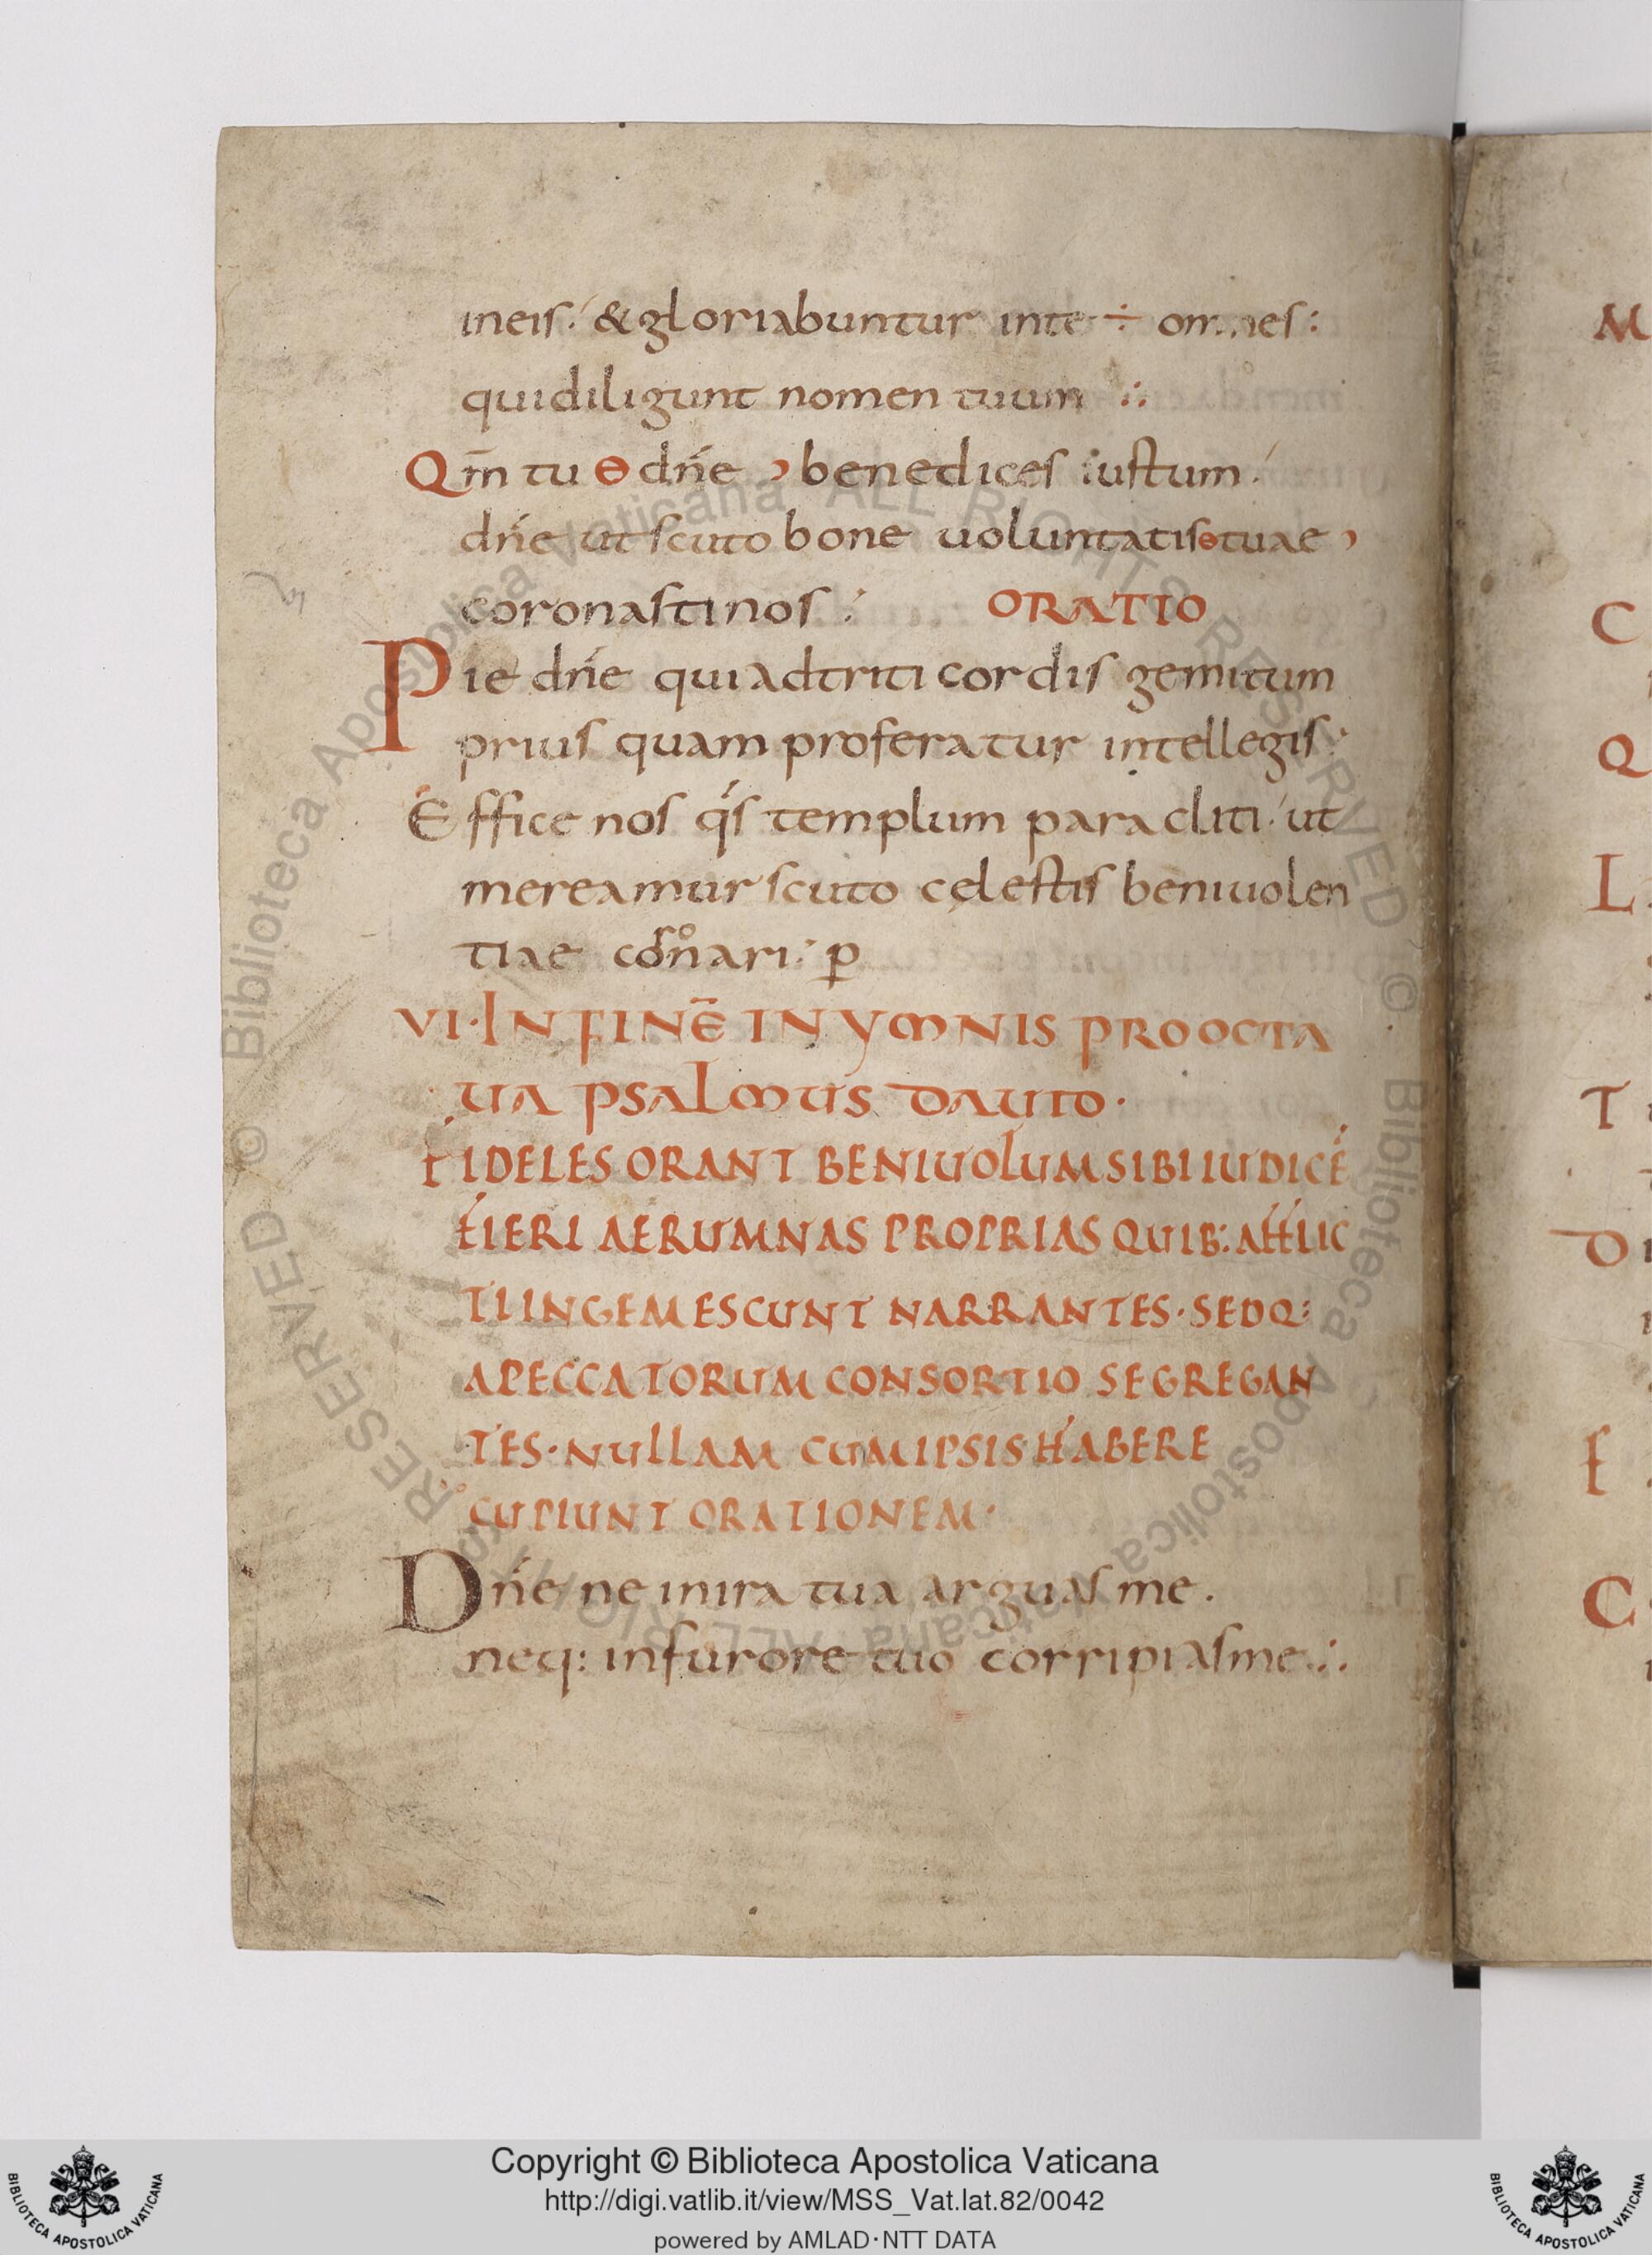 ineis: & gloriabuntur inte ÷ omnes:
quidiligunt nomen tuum ∴
Qm̄ tu ɵ dn̄e ͻ benedices iustum:
dn̄e ut scuto bone uoluntatis ɵ tuae ͻ
coronasti nos: ORATIO
Pie dn̄e qui adtriti cordis gemitum
prius quam proferatur intellegis:
Effice nos qs̄ templum paracliti: ut
mereamur scuto cęlestis beniuolen
tiae cornari: p
VI· IN FINĒ IN YMNIS PRO OCTA
UA PSALMUS DAUID·
FIDELES ORANT BENIUOLUM SIBI IUDICĒ
FIERI AERUMNAS PROPRIAS QUIB: AFFLIC
TI INGEMESCUNT NARRANTES· SEDQ:
A PECCATORUM CONSORTIO SEGREGAN
TES· NULLAM CUM IPSIS HABERE
CUPIUNT ORATIONEM·
Dn̄e ne in ira tua arguas me.
neq: in furore tuo corripias me ∴
M
C
Q
L
T
D
F
C
© Biblioteca Apostolica Vaticana ALL RIGHTS RESERVED © Biblioteca Apostolica Vaticana ALL RIGHTS RESERVED
Copyright © Biblioteca Apostolica Vaticana
http://digi.vatlib.it/view/MSS_Vat.lat.82/0042
powered by AMLAD·NTT DATA
BIBLIOTECA APOSTOLICA VATICANA
BIBLIOTECA APOSTOLICA VATICANA